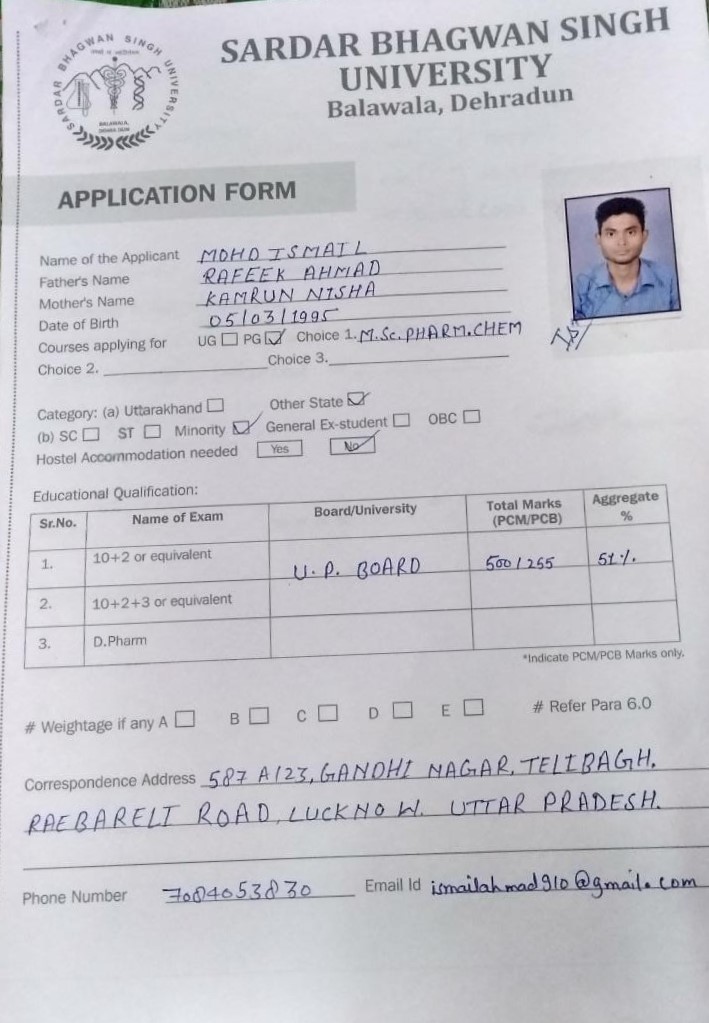 SARDAR BHAGWAN SINGH UNIVERSITY
BALAWALA,
SARDAR BHAGWAN SINGH
UNIVERSITY
Balawala, Dehradun
APPLICATION FORM
Name of the Applicant MOHD ISMAIL
Father's Name RAFEEK AHMAD
Mother's Name KAMRUN NISHA
Date of Birth 05/03/1995
Courses applying for UG PG Choice 1. M.Sc. PHARM. CHEM
Choice 2. Choice 3.
Category: (a) Uttarakhand Other State
(b) SC ST Minority General Ex-student OBC
Hostel Accommodation needed Yes No
Educational Qualification:
Sr.No. Name of Exam Board/University Total Marks (PCM/PCB) Aggregate %
1. 10+2 or equivalent U.P. BOARD 500/255 51%.
2. 10+2+3 or equivalent
3. D.Pharm
*Indicate PCM/PCB Marks only.
# Weightage if any A B C D E # Refer Para 6.0
Correspondence Address 587 A/23, GANDHI NAGAR, TELIBAGH.
RAEBARELI ROAD, LUCKNOW. UTTAR PRADESH.
Phone Number 7084053830 Email Id ismailahmad910@gmail.com